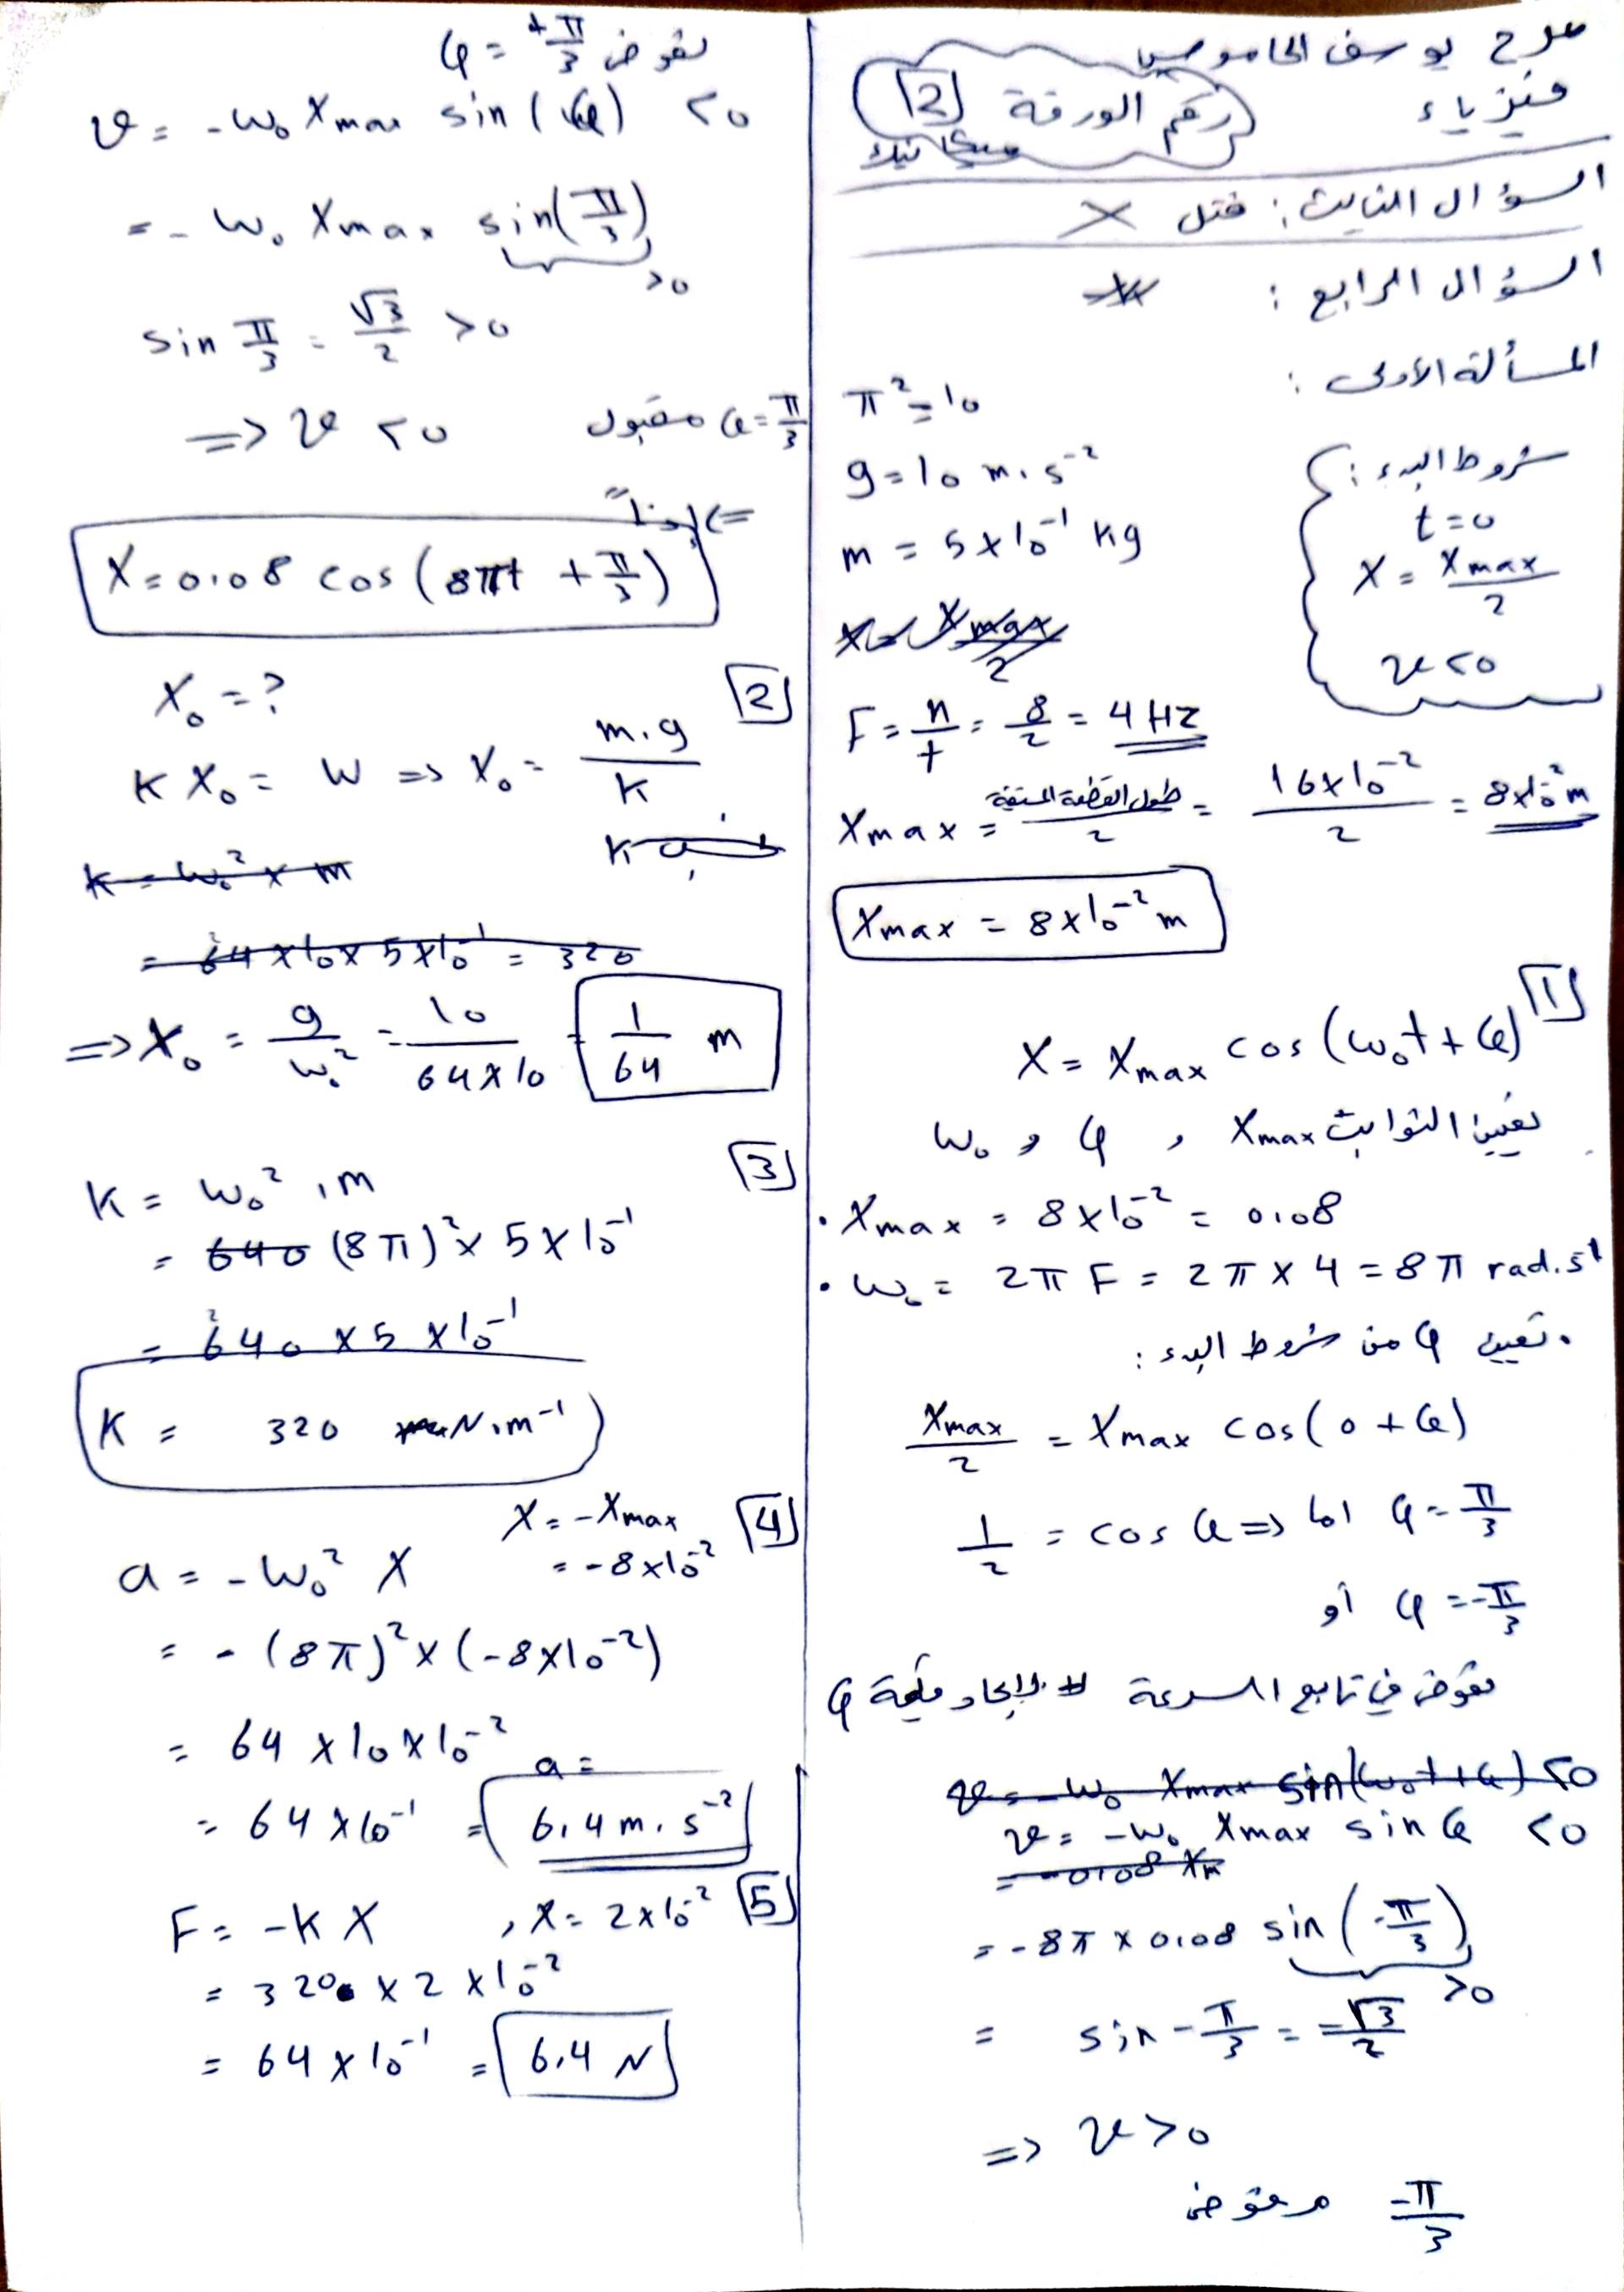 مرح يوسف الحاموض
فيزياء
رقم الورقة [2]
ميكانيك
السؤال الثالث: فتل X
السؤال الرابع:
المسألة الأولى:
شروط البدء:
t=0
X = Xmax/2
v<0
π² = 10
g = 10 m.s⁻²
m = 5×10⁻¹ kg
X = Xmax/2
F = n/t = 8/2 = 4 HZ
Xmax = طول القطعة المستقيمة/2 = 16×10⁻²/2 = 8×10⁻² m
Xmax = 8×10⁻² m
[1]
X = Xmax cos(ω₀t + φ)
نعيين الثوابت Xmax , φ و ω₀
• Xmax = 8×10⁻² = 0.08
• ω₀ = 2πF = 2π×4 = 8π rad.s⁻¹
• تعيين φ من شروط البدء:
Xmax/2 = Xmax cos(0+φ)
1/2 = cos φ => اما φ = π/3
أو φ = -π/3
نعوض في تابع السرعة لإيجاد قيمة φ
v = -ω₀ Xmax sin(ω₀t+φ) <0
v = -ω₀ Xmax sin φ <0
= -0.08 Xm
= -8π × 0.08 sin(-π/3)
>0
= sin -π/3 = -√3/2
=> v>0
-π/3 مرفوض
نعوض φ = +π/3
v = -ω₀ Xmax sin(φ) <0
= -ω₀ Xmax sin(π/3)
>0
sin π/3 = √3/2 >0
=> v <0 φ=π/3 مقبول
X = 0.08 cos(8πt + π/3)
[2]
X₀ = ?
K X₀ = W => X₀ = m.g/K
K = ω₀² × m
= 64×10×5×10⁻¹ = 320
=> X₀ = g/ω₀² = 10/64×10 = 1/64 m
[3]
K = ω₀² . m
= 640 (8π)² × 5×10⁻¹
= 640 × 5 × 10⁻¹
K = 320 N.m⁻¹
[4]
X = -Xmax
= -8×10⁻²
a = -ω₀² X
= -(8π)² × (-8×10⁻²)
= 64 × 10 × 10⁻²
a =
= 64×10⁻¹ = 6.4 m.s⁻²
[5]
F = -K X , X = 2×10⁻²
= 320 × 2 × 10⁻²
= 64×10⁻¹ = 6.4 N